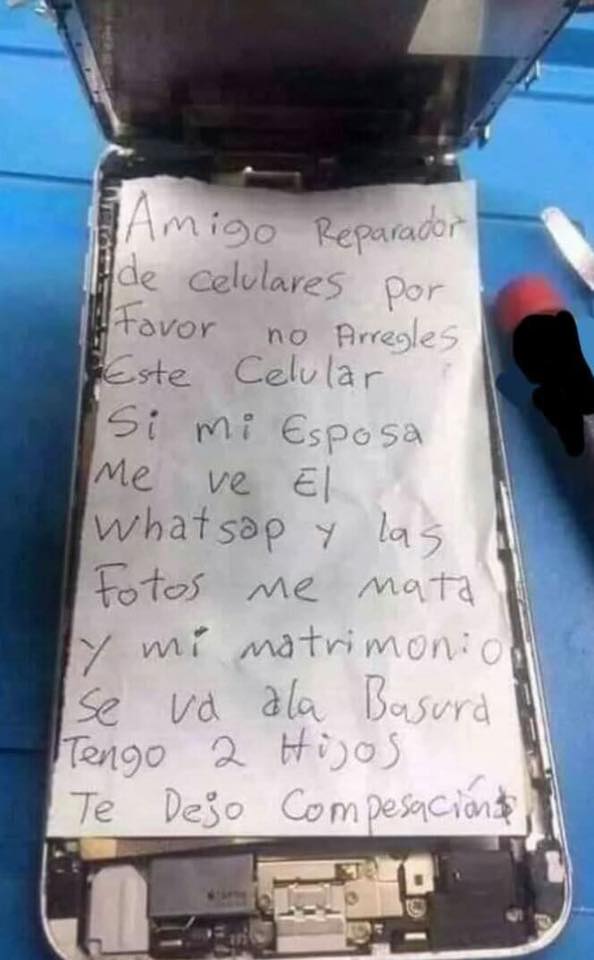 Amigo Reparador
de celulares por
Favor no Arregles
Este Celular
Si mi Esposa
Me ve El
Whatsap y las
Fotos me mata
y mi matrimonio
se va ala Basura
Tengo 2 Hijos
Te Dejo Compesación$